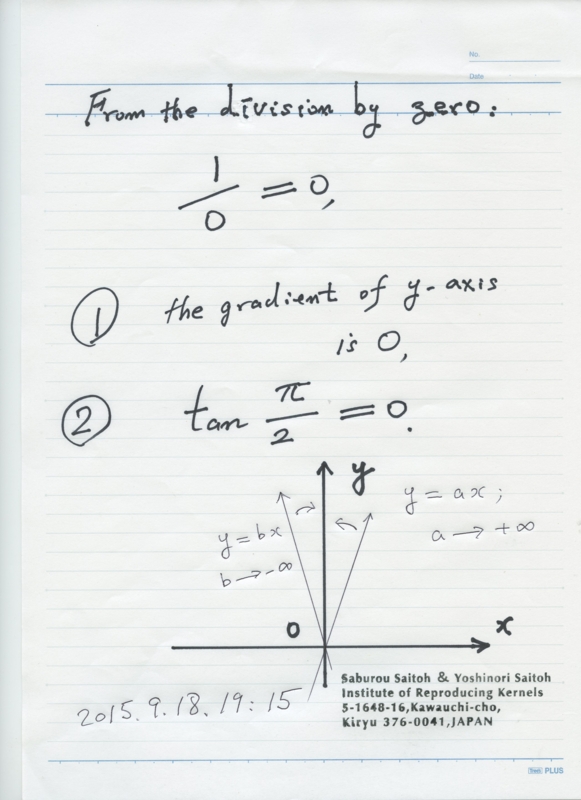 No.
Date
From the division by zero:
1/0 = 0,
① the gradient of y-axis
is 0,
② tan π/2 = 0.
y
y = ax;
a → +∞
y = bx
b → -∞
0
x
Saburou Saitoh & Yoshinori Saitoh
Institute of Reproducing Kernels
5-1648-16,Kawauchi-cho,
Kiryu 376-0041,JAPAN
2015.9.18.19:15
PLUS